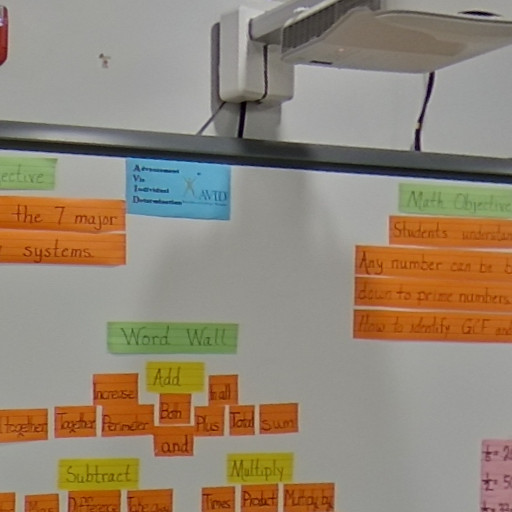 ective
Advancement
Via
Individual
Determination
AVID
the 7 major
systems.
Math Objective
Students understan
Any number can be b
down to prime numbers.
How to identify GCF and
Word Wall
Add
Increase
Both
Together
Perimeter
Plus
Total
Sum
and
Subtract
Multiply
Difference
Times
Product
Multiply by